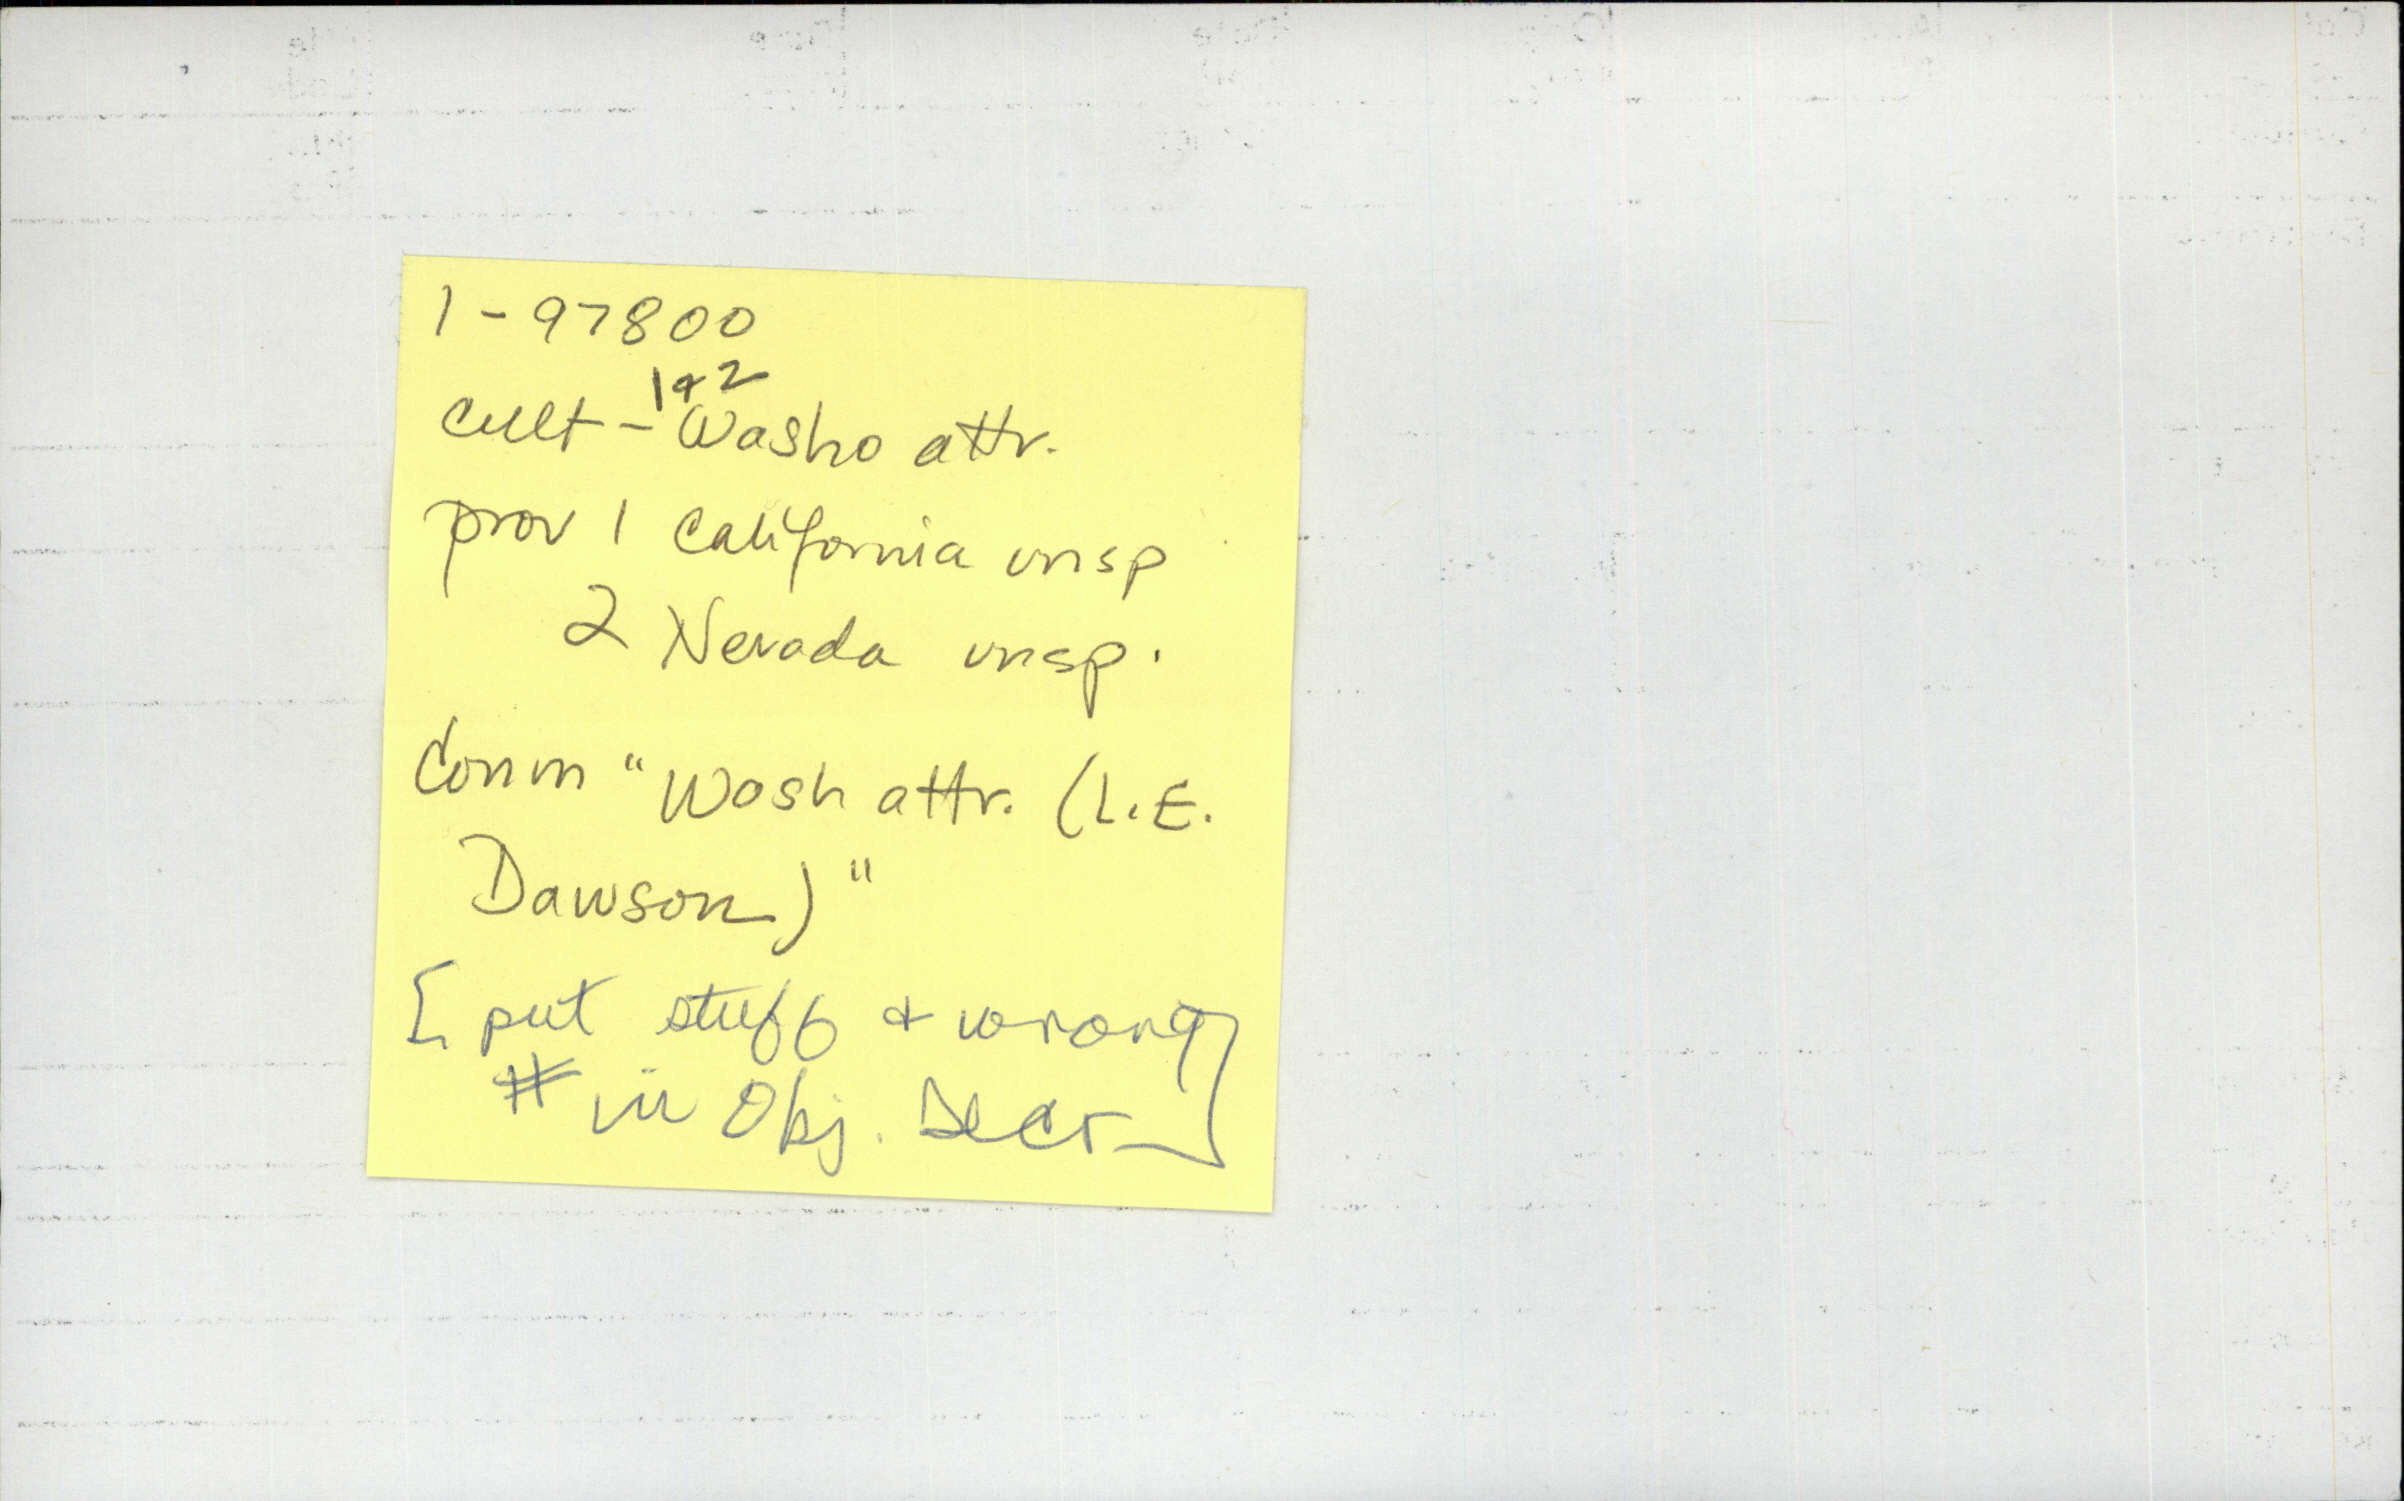 1-97800
1+2
cult - Washo attr.
prov 1 California unsp
2 Nevada unsp.
Comm "Wash attr. (L.E.
Dawson)"
[put stuff + wrong
# in Obj. Descr]